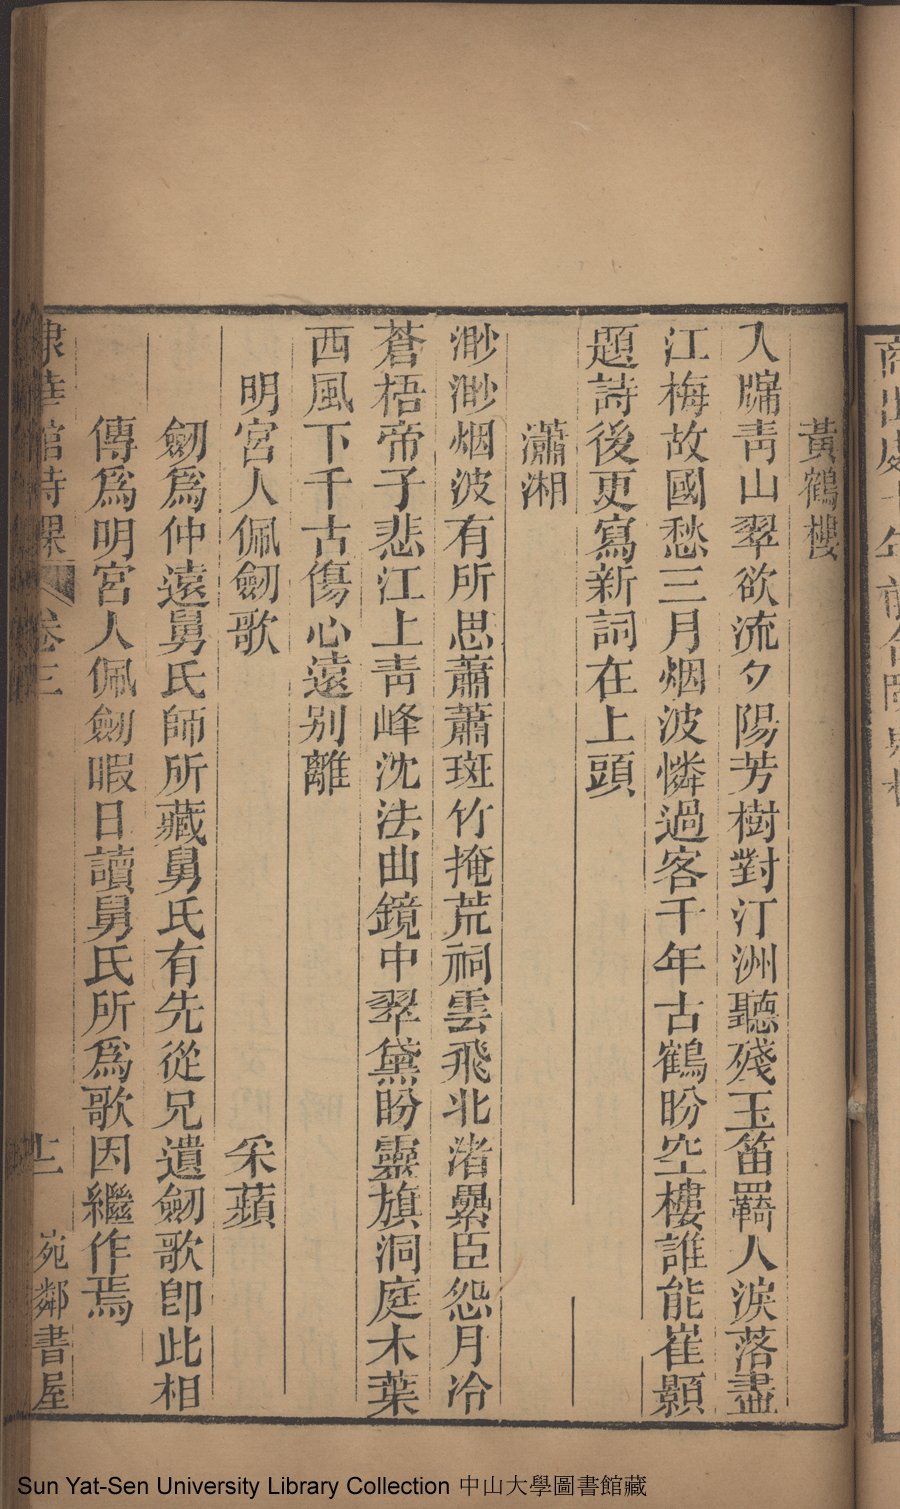 黃鶴樓
入牖靑山翠欲流夕陽芳樹對汀洲聽殘玉笛羈人淚落盡
江梅故國愁三月烟波憐過客千年古鶴盼空樓誰能崔顥
題詩後更寫新詞在上頭
瀟湘
渺渺烟波有所思蕭蕭斑竹掩荒祠雲飛北渚纍臣怨月冷
蒼梧帝子悲江上靑峰沈法曲鏡中翠黛盼靈旗洞庭木葉
西風下千古傷心遠别離
明宮人佩劒歌 采蘋
劒爲仲遠舅氏師所藏舅氏有先從兄遺劒歌卽此相
傳爲明宮人佩劒暇日讀舅氏所爲歌因繼作焉
棣華館詩課 卷三 宛鄰書屋
Sun Yat-Sen University Library Collection 中山大學圖書館藏